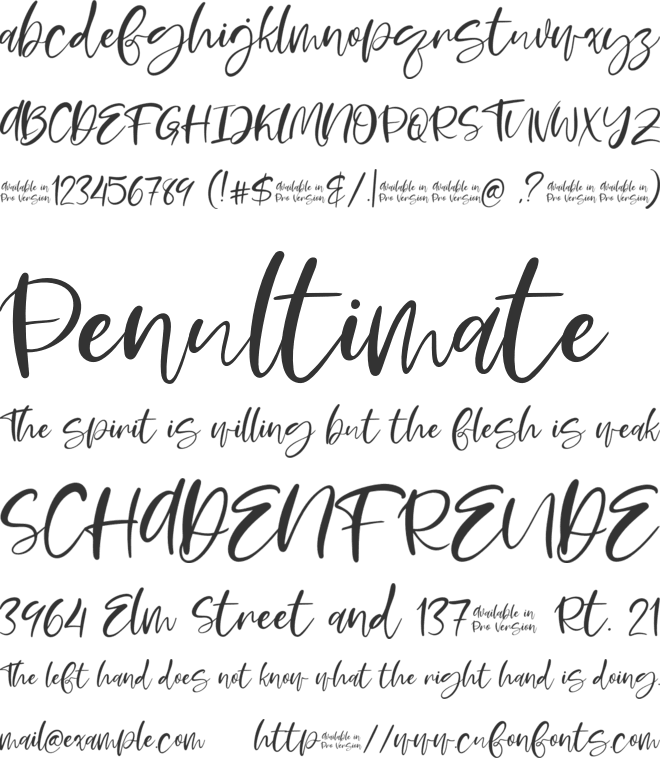 abcdefghijklmnopqrstuvwxyz
ABCDEFGHIJKLMNOPQRSTUVWXYZ
Available in Pro Version 123456789 (!#$ Available in Pro Version &/.| Available in Pro Version Available in Pro Version @ ,? Available in Pro Version Available in Pro Version )
Penultimate
The spirit is willing but the flesh is weak
SCHADENFREUDE
3964 Elm Street and 137 Available in Pro Version Rt. 21
The left hand does not know what the right hand is doing.
mail@example.com http Available in Pro Version //www.cufonfonts.com